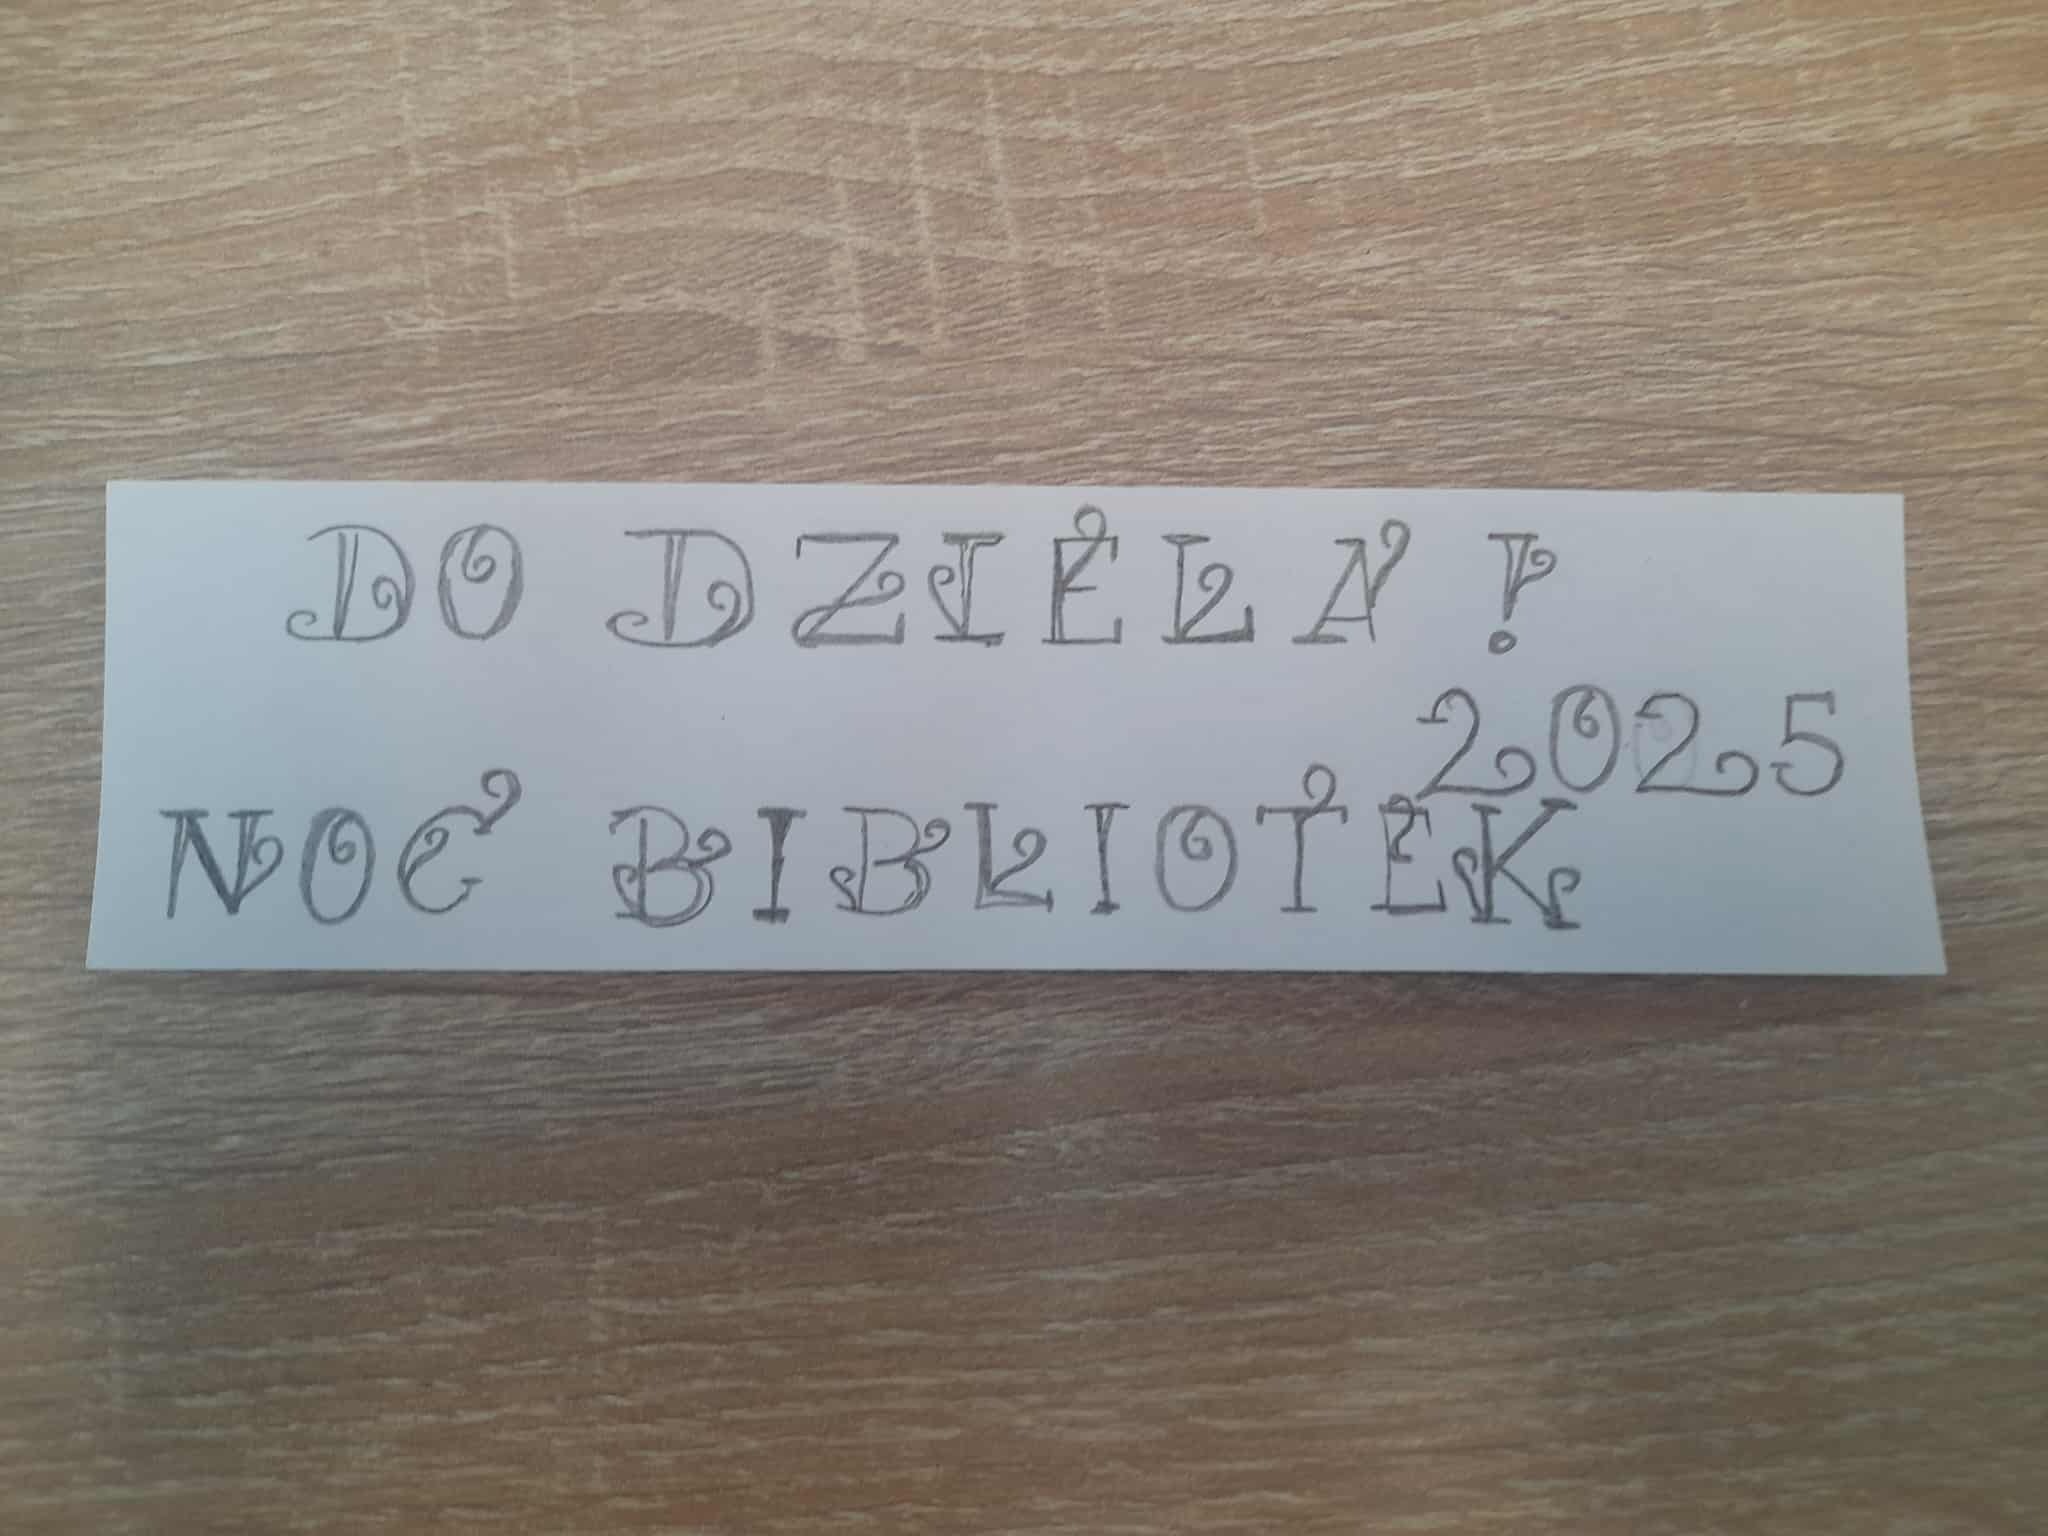 DO DZIEŁA!
2025
NOC BIBLIOTEK